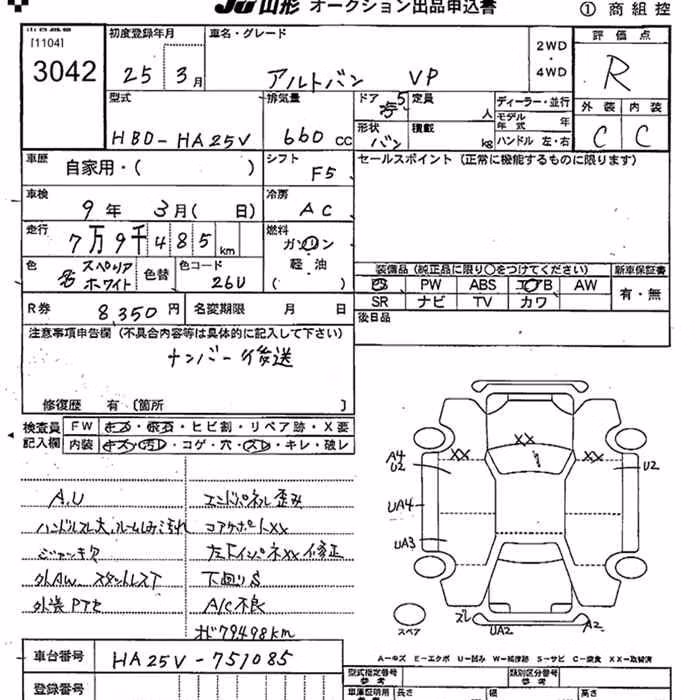 JU山形 オークション出品申込書
① 商 組 控
[1104]
3042
初度登録年月
25 3月
車名・グレード
アルトバン VP
2WD
・
4WD
評価点
R
型式
HBD-HA25V
排気量
660 cc
ドア
5
定員
人
形状
バン
積載
kg
ディーラー・並行
モデル年式 年
ハンドル 左・右
外装 内装
C C
車歴
自家用・( )
シフト
F5
セールスポイント (正常に機能するものに限ります)
車検
9年 3月( 日)
冷房
AC
走行
7万9千485km
燃料
ガソリン
軽・油
( )
色
スペリア
ホワイト
色替
色コード
26U
装備品 (純正品に限り○をつけてください)
新車保証書
PS PW ABS エアB AW
SR ナビ TV カワ
有・無
R券
8,350円
名変期限 月 日
後日品
注意事項申告欄 (不具合内容等は具体的に記入して下さい)
ナンバー後送
修復歴 有 〔箇所 〕
検査員
記入欄
FW キズ・飛石・ヒビ割・リペア跡・X要
内装 キズ・汚レ・コゲ・穴・スレ・キレ・破レ
A.U
ハンドルスレ大、ルームしみ汚れ
ジャッキ欠
外AW スタントレスT
外装PTセ
エンドパネル歪み
コアサポートXX
左右インパネXX修正
下回りS
A/C不良
オド79498km
XX
A4
U2
XX
XX
U2
UA4
UA3
ズレ
UA2
A2
スペア
A-キズ E-エクボ U-凹み W-補修跡 S-サビ C-腐食 XX-取替済
車台番号
HA25V-751085
登録番号
型式指定番号
参考
類別区分番号
参考
車庫証明用
長さ
幅
高さ